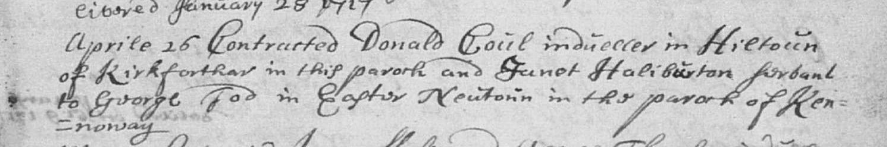 livered January 28 1717
Aprile 26 Contracted Donald Coul indueller in Hiltoun
of Kirkforthar in this paroch and Janet Haliburton servant
to George Tod in Easter Neutoun in the paroch of Ken=
=noway